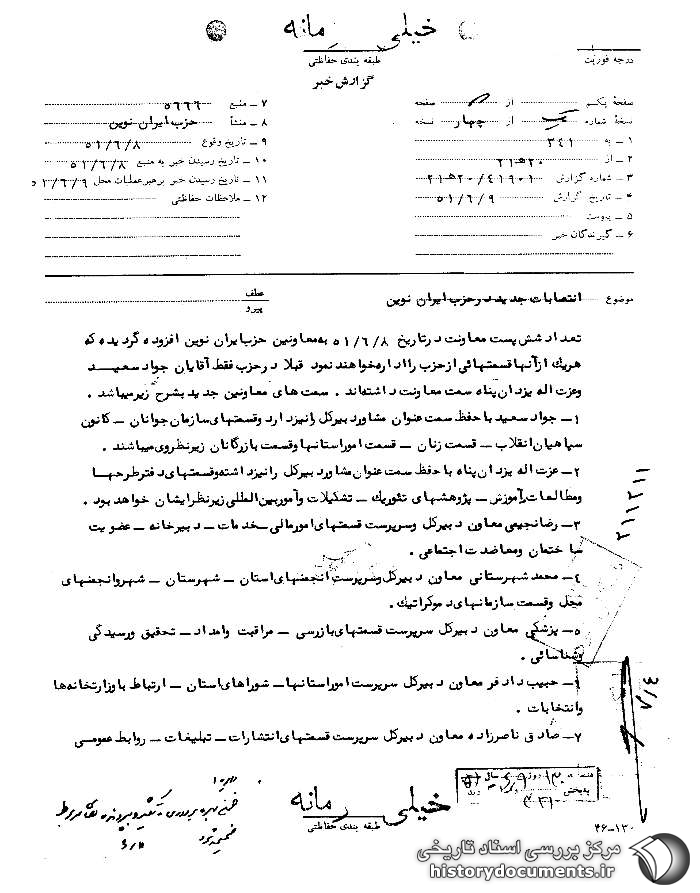 خیلی محرمانه
طبقه بندی حفاظتی
گزارش خبر
درجه فوریت
صفحه یکم از صفحه
نسخه شماره یک از چهار نسخه
۱ ـ به ۳۴۱
۲ ـ از ۲۰ﻫ۲۱
۳ ـ شماره گزارش ۴۱۹۰۱/۲۰ﻫ۲۱
۴ ـ تاریخ گزارش ۵۱/۶/۹
۵ ـ پیوست
۶ ـ گیرندگان خبر
۷ ـ منبع ۵۶۶۶
۸ ـ منشأ حزب ایران نوین
۹ ـ تاریخ وقوع ۵۱/۶/۸
۱۰ ـ تاریخ رسیدن خبر به منبع ۵۱/۶/۸
۱۱ ـ تاریخ رسیدن خبر برهبر عملیات محل ۵۱/۶/۹
۱۲ ـ ملاحظات حفاظتی
موضوع انتصابات جدید در حزب ایران نوین
عطف
پیرو
تعداد شش پست معاونت در تاریخ ۵۱/۶/۸ به معاونین حزب ایران نوین افزوده گردیده که
هریک از آنها قسمتهائی از حزب را اداره خواهند نمود قبلا در حزب فقط آقایان جواد سعیـد
وعزت اله یزدان پناه سمت معاونت داشته‌اند . سمت های معاونین جدید بشرح زیر میباشد .
۱ـ جواد سعید با حفظ سمت عنوان مشاور دبیرکل را نیز دارد و قسمتهای سازمان جوانان ـ کانون
سپاهیان انقلاب ـ قسمت زنان ـ قسمت امور استانها وقسمت بازرگانان زیر نظر وی میباشند .
۲ـ عزت اله یزدان پناه با حفظ سمت عنوان مشاور دبیرکل را نیز داشته وقسمتهای دفتر طرحهـا
ومطالعات وآموزش ـ پژوهشهای تئوریک ـ تشکیلات وامور بین المللی زیر نظر ایشان خواهد بود .
۳ـ رضا نجیمی معاون دبیرکل وسرپرست قسمتهای امور مالی ـ خدمات ـ دبیرخانه ـ عضویت
ساختمان ومعاضدت اجتماعی .
۴ـ محمد شهرستانی معاون دبیرکل وسرپرست انجمنهای استان ـ شهرستان ـ شهر وانجمنهای
محل وقسمت سازمانهای دموکراتیک .
۵ـ پزشکی معاون دبیرکل سرپرست قسمتهای بازرسی ـ مراقبت وامداد ـ تحقیق ورسیدگی
وشناسائی .
۶ـ حبیب دادفر معاون دبیرکل سرپرست امور استانهاـ شوراهای استان ـ ارتباط با وزارتخانه‌ها
وانتخابات .
۷ـ صادق ناصرزاده معاون دبیرکل سرپرست قسمتهای انتشارات ـ تبلیغات ـ روابط عمومـی
۲۱۱۲۱۱
۷/۴
خیلی محرمانه
طبقه بندی حفاظتی
۴۶-۱۳۰
مرکز بررسی اسناد تاریخی
historydocuments.ir